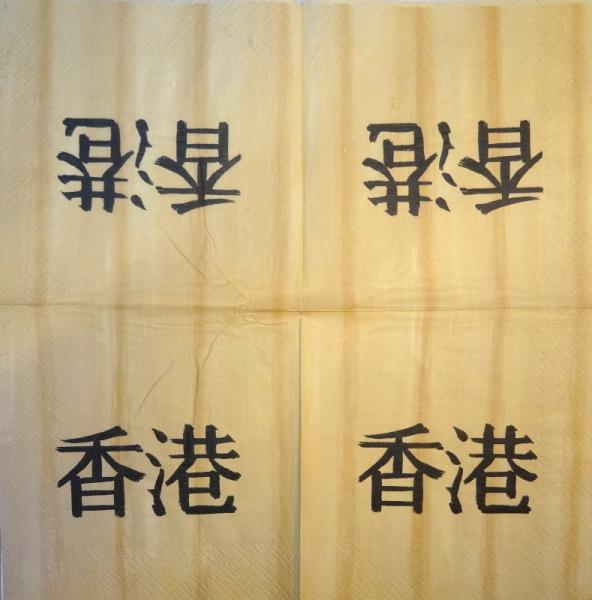 香港 香港
香港 香港